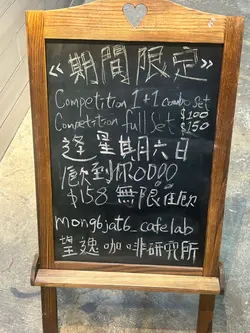 《期間限定》
Competition 1+1 combo set $100
Competition full Set $150
逢星期六日
飲到你OOOO
$158 無限任飲
mongbjat6_cafelab
望逸咖啡研究所